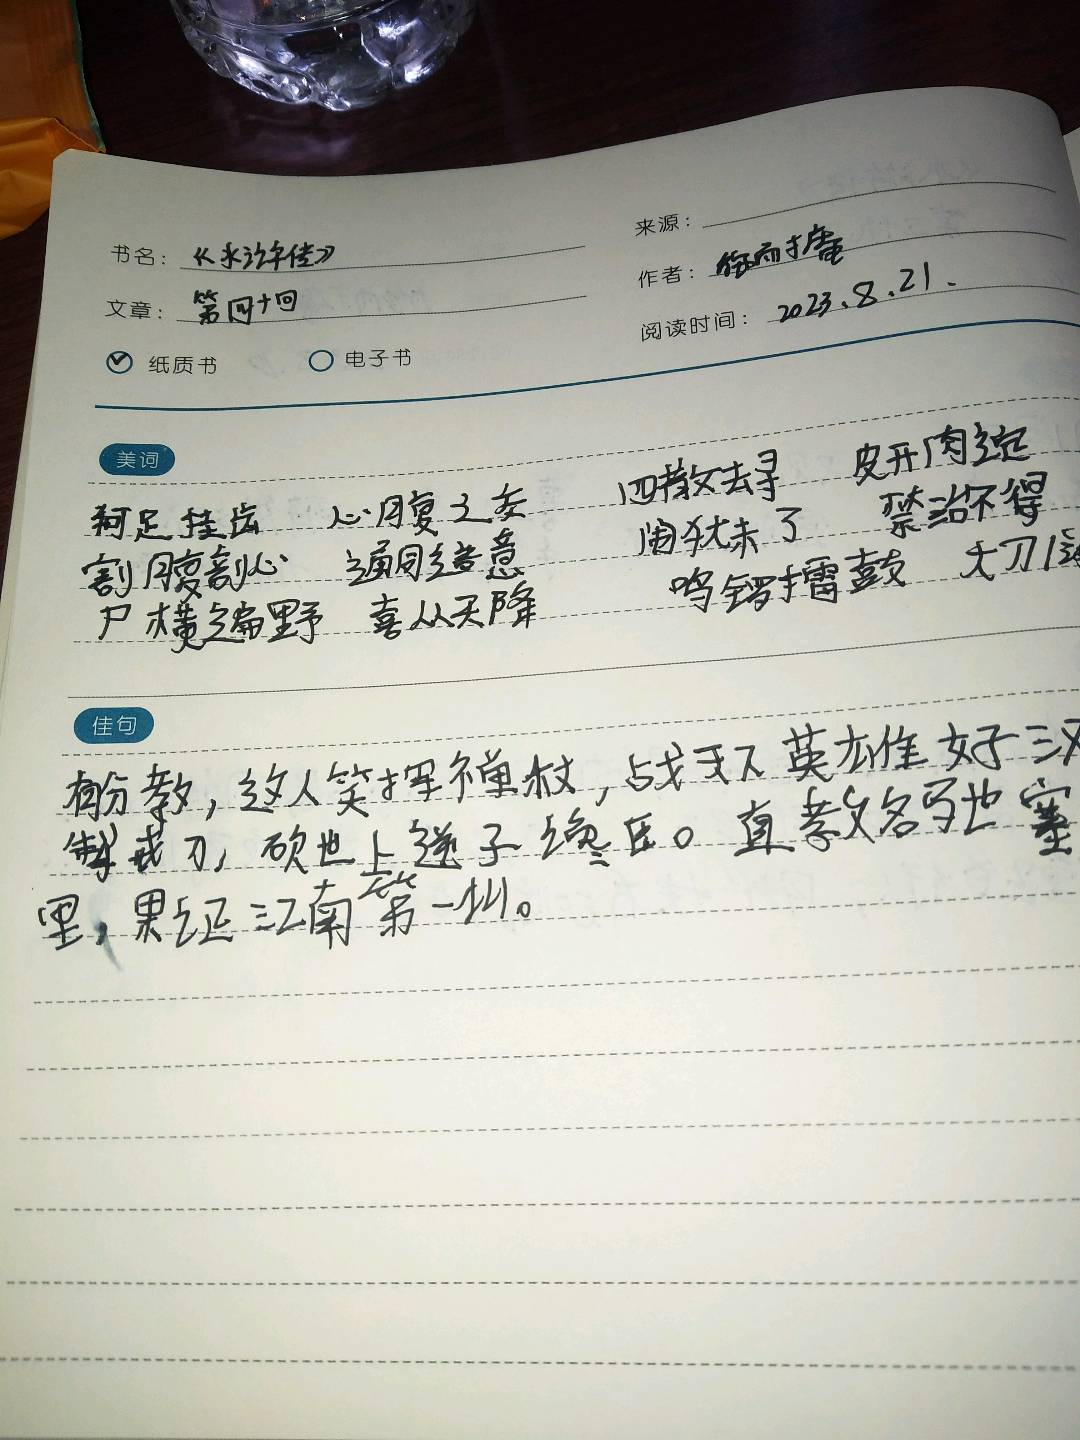 书名：《水浒传》
来源：
文章：第四十回
作者：施耐庵
纸质书 电子书
阅读时间：2023.8.21.
美词
何足挂齿 心腹之交 四散去寻 皮开肉绽
割腹剖心 通同造意 闹犹未了 禁治不得
尸横遍野 喜从天降 鸣锣擂鼓 大刀
佳句
有分教，这人笑挥禅杖，战天下英雄好汉
掣戒刀，砍世上逆子谗臣。直教名马地塞
里，果证江南第一州。